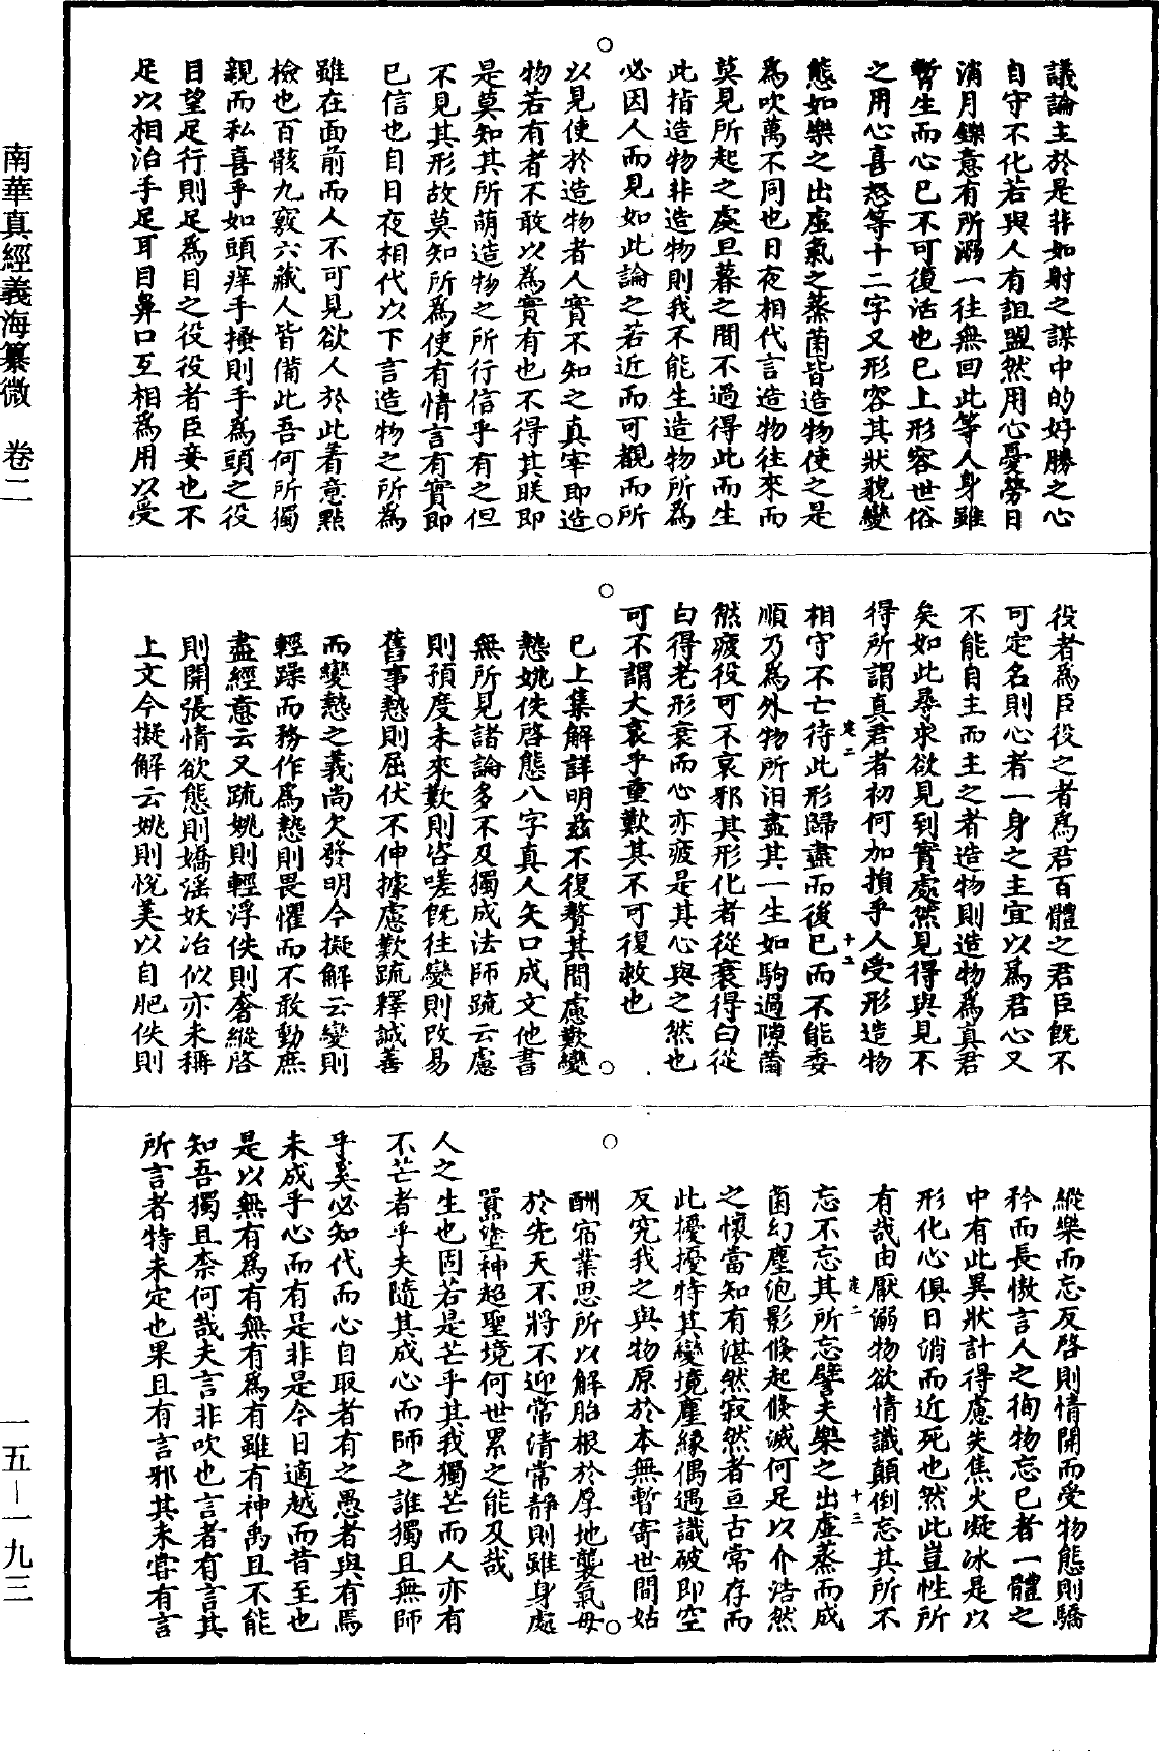 議論主於是非如射之謀中的好勝之心
自守不化若與人有詛盟然用心憂勞日
消月鑠意有所溺一往無回此等人身雖
暫生而心已不可復活也已上形容世俗
之用心喜怒等十二字又形容其狀貌變
態如樂之出虛氣之蒸菌皆造物使之是
為吹萬不同也日夜相代言造物往來而
莫見所起之處旦暮之間不過得此而生
此指造物非造物則我不能生造物所為
必因人而見如此論之若近而可觀而所
以見使於造物者人實不知之真宰即造
物若有者不敢以為實有也不得其眹即
是莫知其所萌造物之所行信乎有之但
不見其形故莫知所為使有情言有實即
已信也自日夜相代以下言造物之所為
雖在面前而人不可見欲人於此着意點
檢也百骸九竅六藏人皆備此吾何所獨
親而私喜乎如頭痒手搔則手為頭之役
目望足行則足為目之役役者臣妾也不
足以相治手足耳目鼻口互相為用以受
役者為臣役之者為君百體之君臣既不
可定名則心者一身之主宜以為君心又
不能自主而主之者造物則造物為真君
矣如此尋求欲見到實處然見得與見不
得所謂真君者初何加損乎人受形造物
相守不亡待此形歸盡而後已而不能委
順乃為外物所汩盡其一生如駒過隙薾
然疲役可不哀邪其形化者從衰得白從
白得老形衰而心亦疲是其心與之然也
可不謂大哀乎重歎其不可復救也
已上集解詳明茲不復贅其間慮歎變
慹姚佚啓態八字真人矢口成文他書
無所見諸論多不及獨成法師疏云慮
則預度未來歎則咨嗟既往變則改易
舊事慹則屈伏不伸據慮歎疏釋誠善
而變慹之義尚欠發明今擬解云變則
輕躁而務作為慹則畏懼而不敢動庶
盡經意云又疏姚則輕浮佚則奢縱啓
則開張情欲態則嬌淫妖冶似亦未稱
上文今擬解云姚則悅美以自肥佚則
縱樂而忘反啓則情開而受物態則驕
矜而長傲言人之徇物忘已者一體之
中有此異狀計得慮失焦火凝冰是以
形化心俱日消而近死也然此豈性所
有哉由厭溺物欲情識顛倒忘其所不
忘不忘其所忘譬夫樂之出虛蒸而成
菌幻塵泡影倏起倏滅何足以介浩然
之懷當知有湛然寂然者亘古常存而
此擾擾特其變境塵緣偶遇識破即空
反究我之與物原於本無暫寄世間姑
酬宿業思所以解胎根於厚地襲氣母
於先天不將不迎常清常靜則雖身處
囂塗神超聖境何世累之能及哉
人之生也固若是芒乎其我獨芒而人亦有
不芒者乎夫隨其成心而師之誰獨且無師
乎奚必知代而心自取者有之愚者與有焉
未成乎心而有是非是今日適越而昔至也
是以無有為有無有為有雖有神禹且不能
知吾獨且柰何哉夫言非吹也言者有言其
所言者特未定也果且有言邪其未嘗有言
卷二
十二
卷二
十三
南華真經義海纂微 卷二
一五－一九三